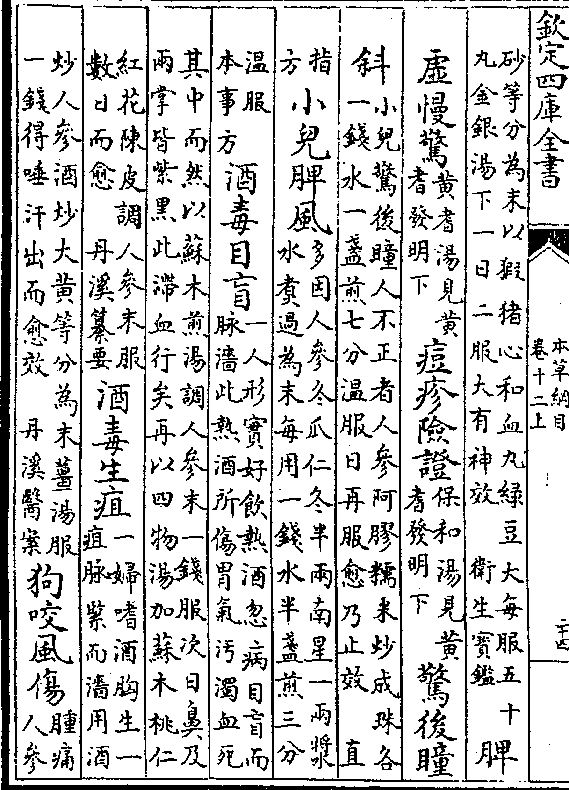 欽定四庫全書
本草綱目
卷十二上
二十四
砂等分為末以豶猪心和血丸緑豆大每服五十
丸金銀湯下一日二服大有神效 衛生寳鑑
脾
虚慢驚
黄耆湯見黄
耆發明下
痘疹險證
保和湯見黄
耆發明下
驚後瞳
斜
小兒驚後瞳人不正者人參阿膠糯米炒成珠各
一錢水一盞煎七分温服日再服愈乃止效 直
指
方
小兒脾風
多因人參冬瓜仁冬半兩南星一兩漿
水煑過為末每用一錢水半盞煎三分
温服
本事方
酒毒目盲
一人形實好飲熱酒忽病目盲而
脉濇此熱酒所傷胃氣汚濁血死
其中而然以蘇木煎湯調人參末一錢服次日鼻及
兩掌皆紫黒此滯血行矣再以四物湯加蘇木桃仁
紅花陳皮調人參末服
數日而愈 丹溪纂要
酒毒生疽
一婦嗜酒胸生一
疽脉緊而濇用酒
炒人參酒炒大黄等分為末薑湯服
一錢得睡汗出而愈效 丹溪醫案
狗咬風傷
腫痛
人參